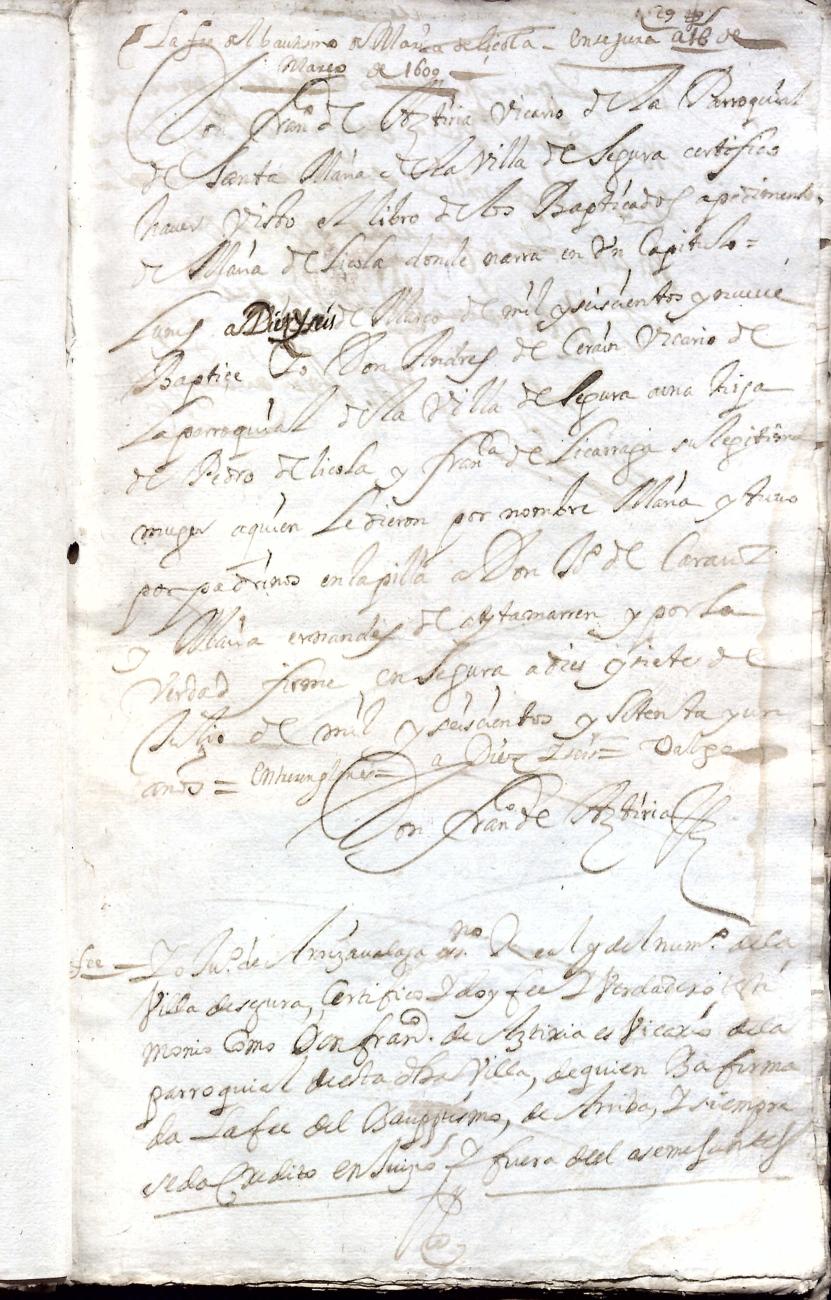 29
La fee del bautismo de Maria de licola - en segura a 16 de
Março de 1609
Don Fran.co de Aztiria Vicario de la Parroquial
de Santa Maria de la Villa de Segura certifico
haver visto el libro de los Bapticados apedimento
de Maria de licola donde narra en Un Capitulo =
Lunes a Diez y seis de Março de mil y seiscientos y nueve
Baptiçe Yo Don Andres de Cerain Vicario de
La parroquial de la Villa de Segura auna hija
de Pedro de licola y fran.ca de licarraga su legitima
muger aquien le dieron por nombre Maria y tuuo
por padrinos en la pilla a Don Ju.o de Carauz
y Maria ernandes de oytamarren y por la
Verdad firme en Segura a dies y siete de
Julio de mil y seiscientos y setenta y un
anos = entrerenglones = a Diez y seis = Valga
Don fran.co de Aztiria
fee - Yo Ju.o de Arrizaualaga es.no Real y del num.o de la
Villa de segura, Certifico Y doy fee Y Verdadero testi
monio Como Don fran.co de Aztiria es Vicario de la
parroquial de esta dha Villa, de quien Ba firma
da La fee del Bauptismo, de Arriba, Y siempre
se da Credito en Juiço Y fuera del asemejantes